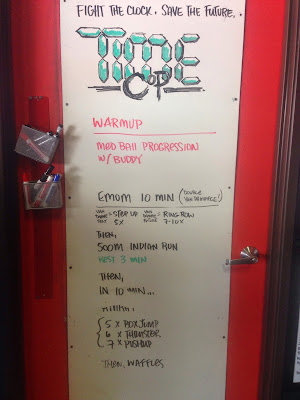 FIGHT THE CLOCK. SAVE THE FUTURE.
TIME
COP
WARMUP
MED BALL PROGRESSION
W/ BUDDY
EMOM 10 MIN (DOUBLE VAN DAMMAGE)
VAN DAMME THAT = STEP UP 5X VAN DAMME = RING ROW 7-10X
THEN,
500M INDIAN RUN
REST 3 MIN
THEN,
IN 10 MIN...
AMRAP:
5 X BOX JUMP
6 X THRUSTER
7 X PUSHUP
THEN, WAFFLES